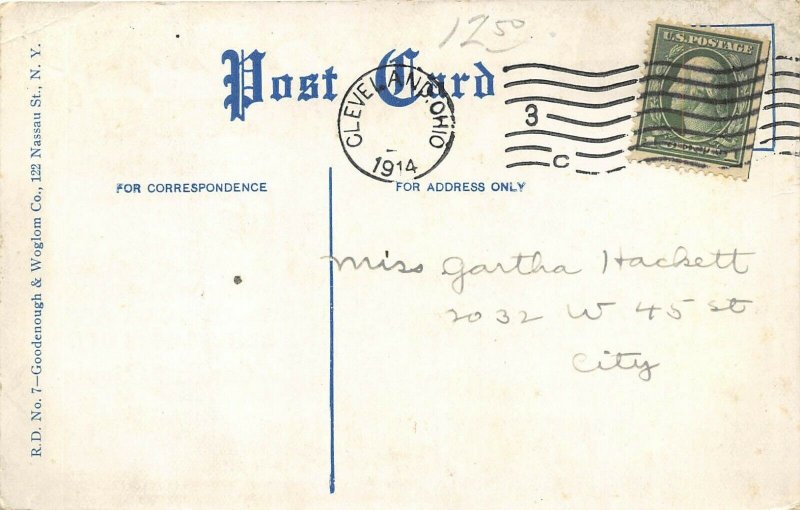 12.50
Post Card
U.S. POSTAGE
CLEVELAND, OHIO
1914
3
C
FOR CORRESPONDENCE
FOR ADDRESS ONLY
Miss Gartha Hackett
2032 W 45 St
City
R.D. No. 7—Goodenough & Woglom Co., 122 Nassau St., N. Y.